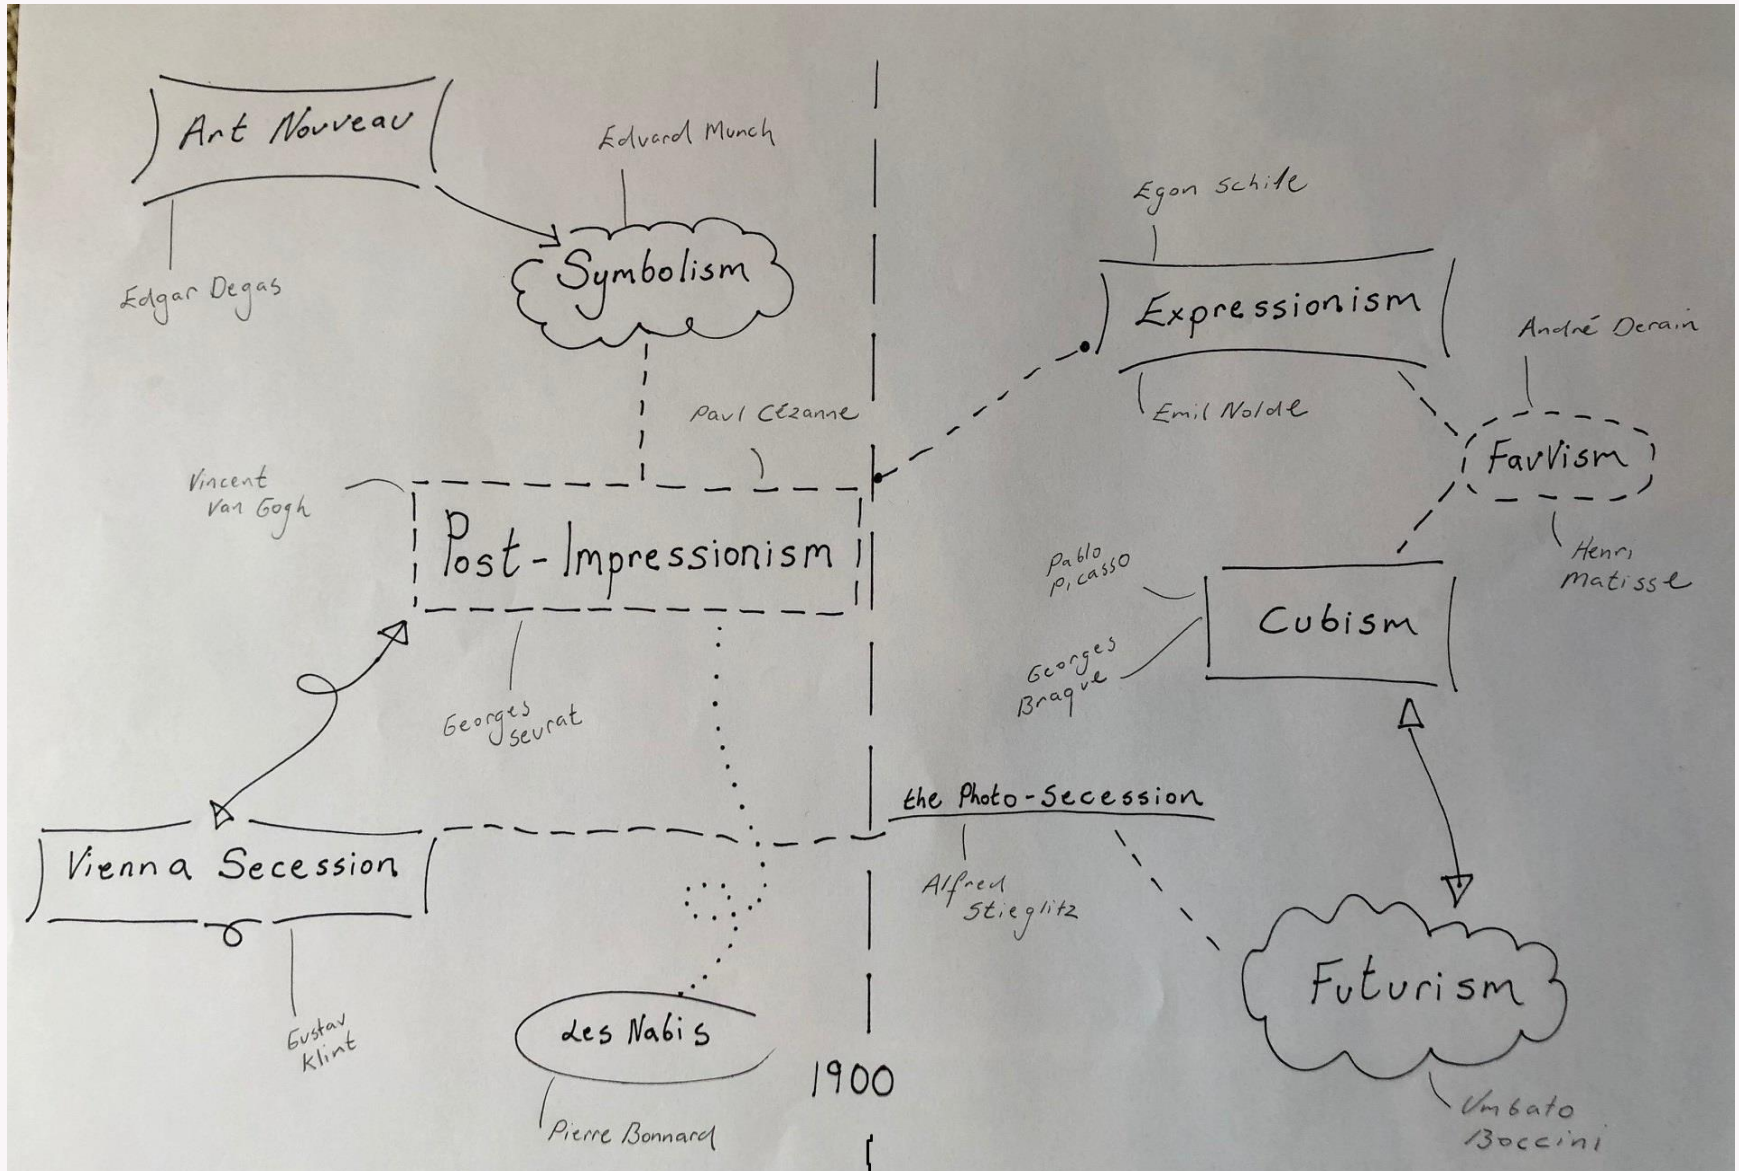 Art Nouveau
Edvard Munch
Edgar Degas
Symbolism
Paul Cézanne
Vincent
Van Gogh
Post-Impressionism
Georges
Seurat
Vienna Secession
Gustav
Klint
Les Nabis
Pierre Bonnard
1900
Egon Schile
Expressionism
Emil Nolde
André Derain
Fauvism
Henri
Matisse
Pablo
Picasso
Georges
Braque
Cubism
the Photo-Secession
Alfred
Stieglitz
Futurism
Umbato
Boccini